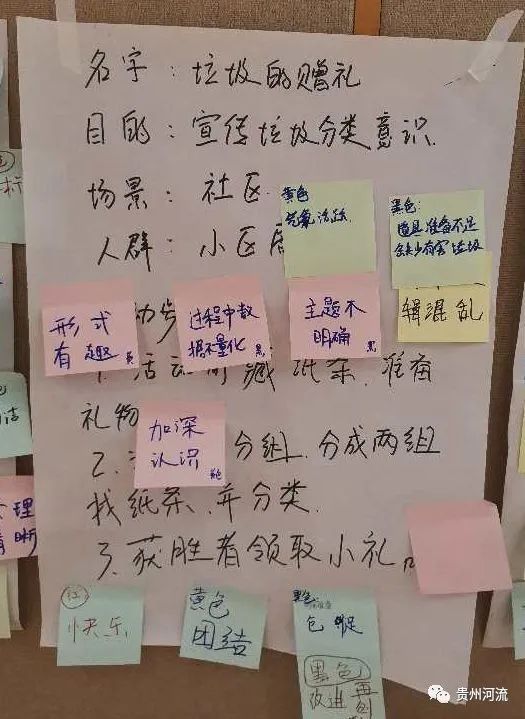 名字：垃圾的赠礼
目的：宣传垃圾分类意识.
场景：社区
人群：小区
黄色
氛氛活跃
黑色:
道具准备不足
缺少有害垃圾
形式
有趣
过程中数
据不量化 黑
主题不
明确 黑
辑混乱
动步
1. 活动前藏纸条.准备
礼物
加深
认识
2、
分组，分成两组
找纸条.并分类.
3、获胜者领取小礼
红
快乐
黄色
团结
黑色:
黑色
改进
理
晰
洁
贵州河流